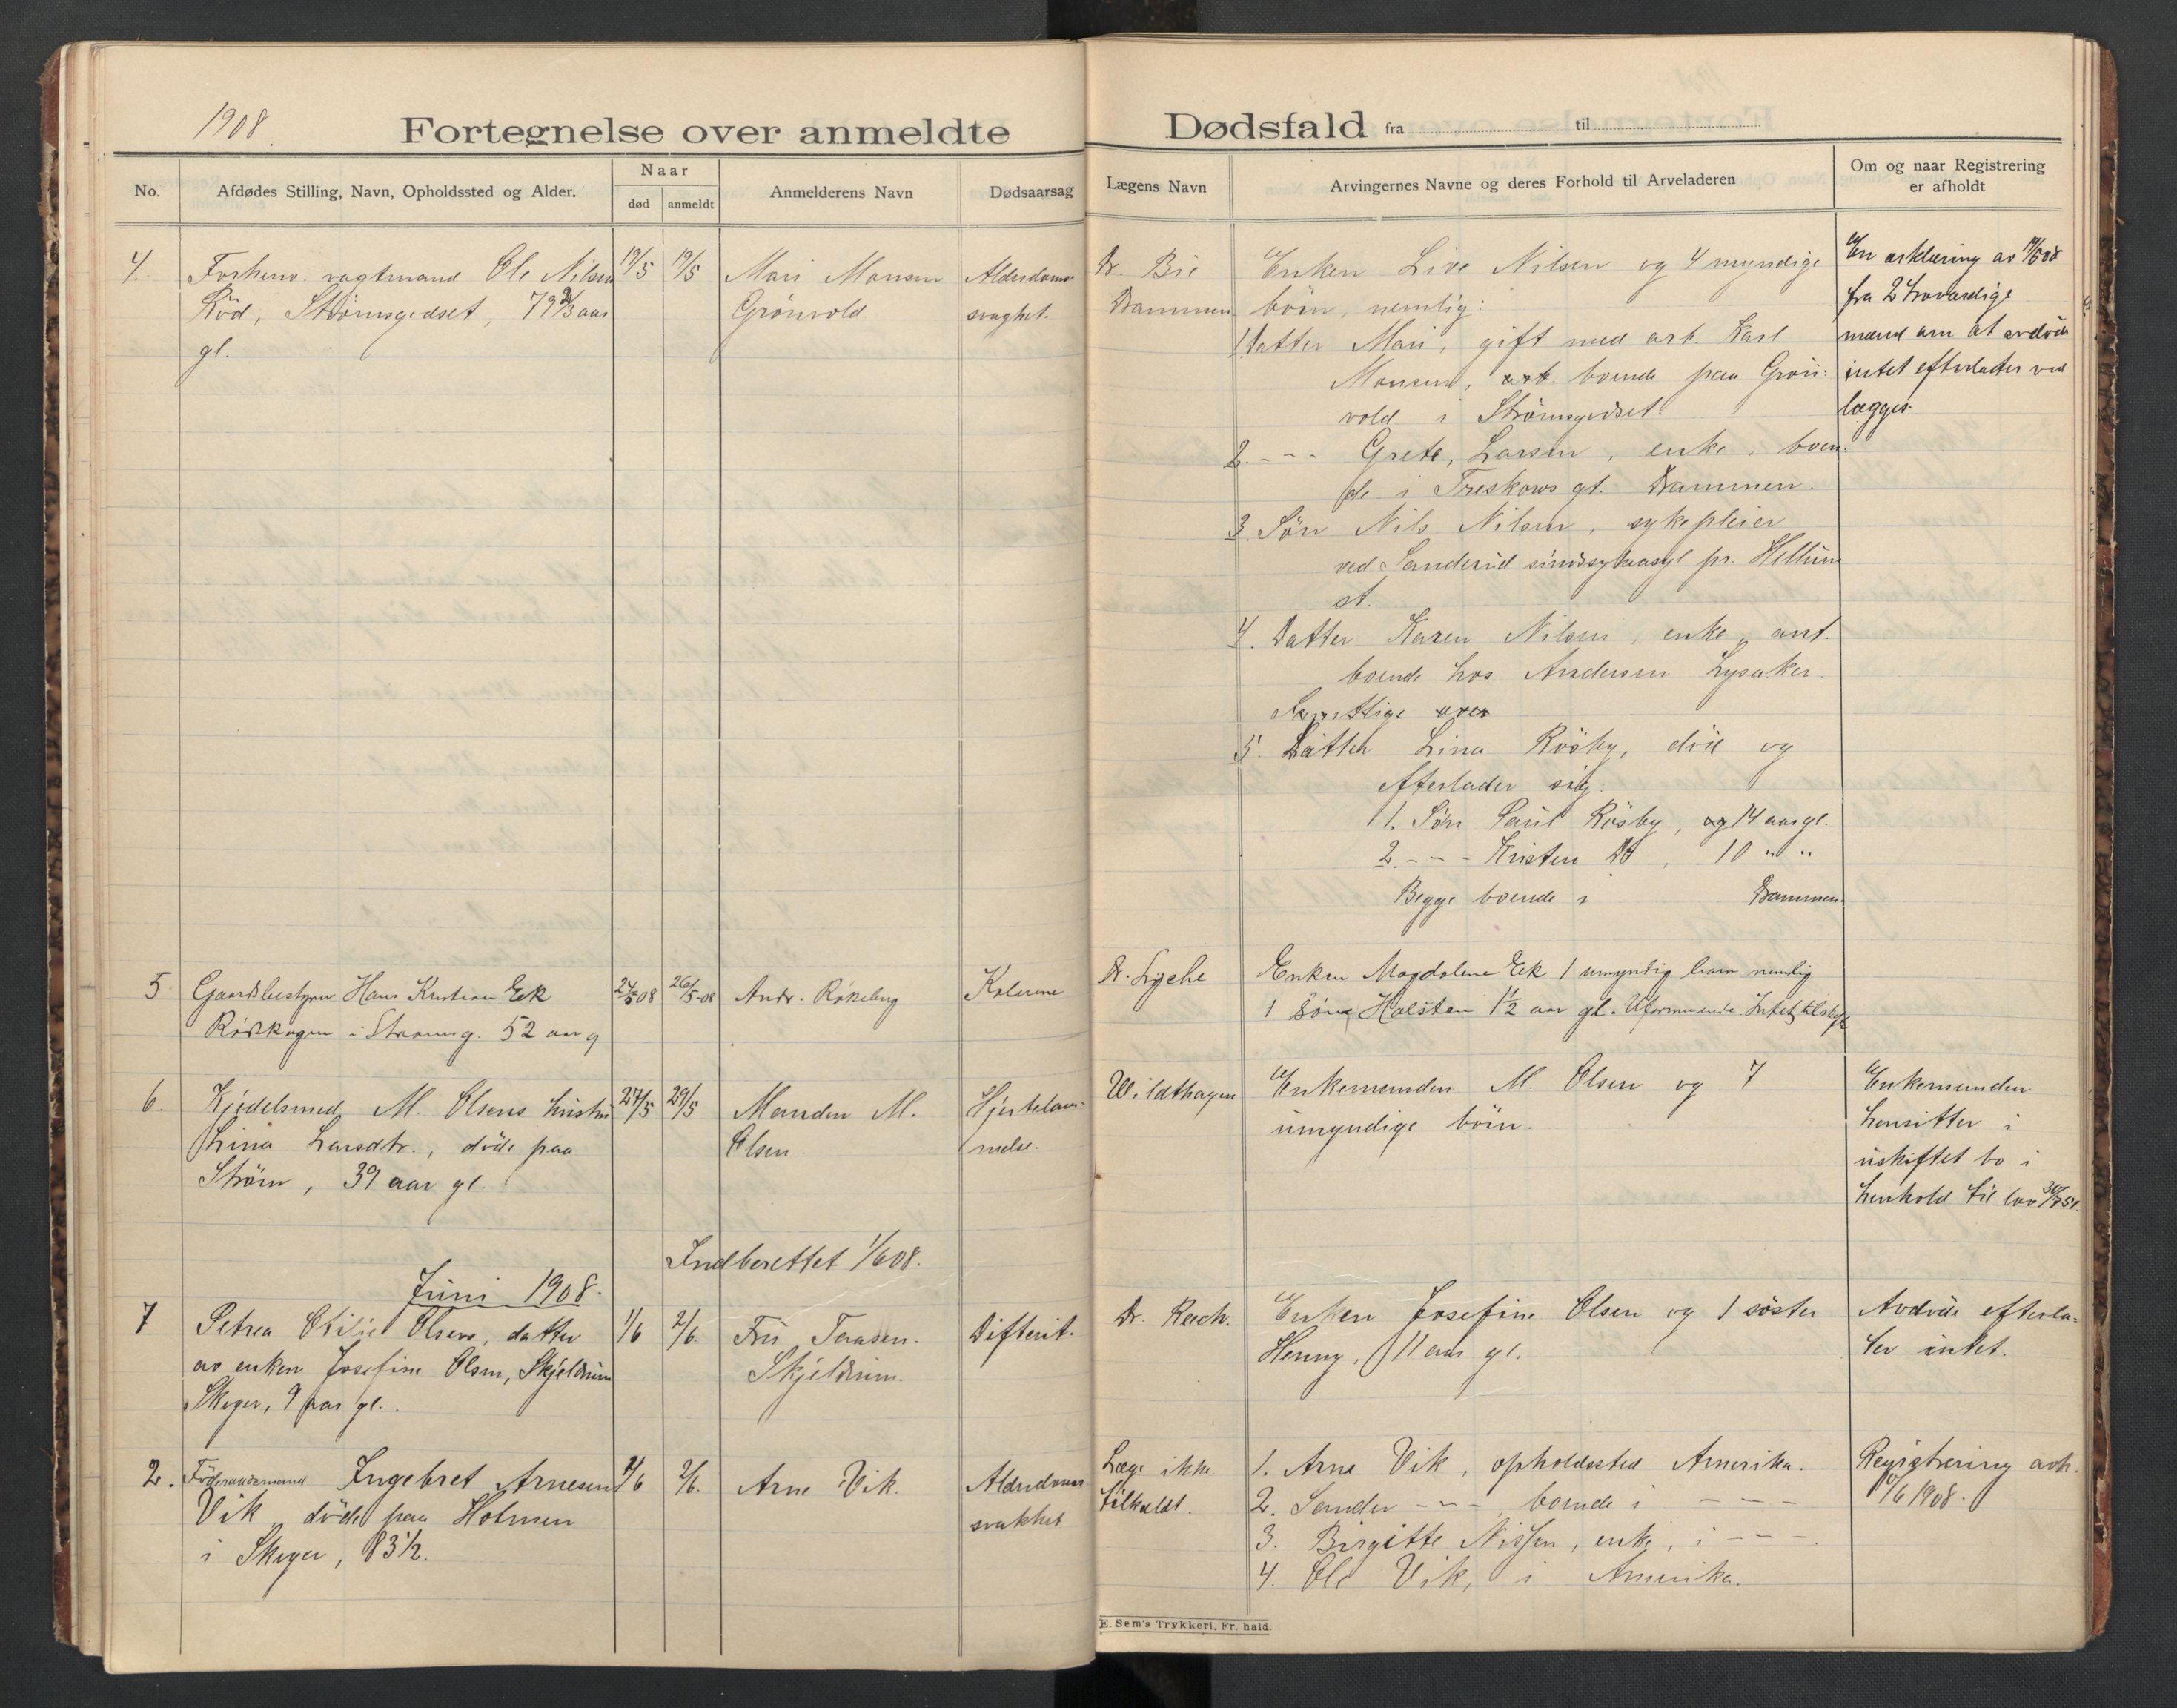 1908.
Fortegnelse over anmeldte Dødsfald fra til
No.
Afdødes Stilling, Navn, Opholdssted og Alder.
Naar
død
anmeldt
Anmelderens Navn
Dødsaarsag
Lægens Navn
Arvingernes Navne og deres Forhold til Arveladeren
Om og naar Registrering
er afholdt
4.
Forhenv. vagtmand Ole Nilsen
Röd, Strömsgodset, 79 2/3 aar
gl.
19/5
19/5
Mari Monsen
Grönvold
Alderdoms-
svaghet.
Dr. Bie
Drammen
Enken Live Nilsen og 4 myndige
börn, nemlig:
1 Datter Mari, gift med arb. Karl
Monsen, boende paa Grön-
vold i Strömsgodset.
2. - - - Grete, Larsen, enke, boen-
de i Treskows gt. Drammen.
3. Sön Nils Nilsen, sykepleier
ved Sanderud sindssykeasyl pr. Hellum
st.
4. Datter Karen Nilsen, enke, ant.
boende hos Andersen Lysaker.
Samtlige over
5. Datter Lina Rösby, död og
efterlader sig:
1. Sön Paul Rösby, og 14 aar gl.
2. - - - Kristen Do, 10 " "
Begge boende i Drammen.
En erklæring av 19/5 08
fra 2 troværdige
mænd om at avdöde
intet efterlater ved
lægges.
5
Gaardsbestyrer Hans Kristian Ek
Rödskogen i Strömsg. 52 aar g
24/5 08
26/5-08
Andr. Rökeberg
Kolerine
Dr. Lyche
Enken Magdalene Ek 1 umyndig barn nemlig
1 sön Halsten 1 1/2 aar gl. Uformuende. Intet tilskifte
6.
Kjedelsmed M. Olsens hustru
Lina Larsdtr., döde paa
Ström, 39 aar gl.
27/5
29/5
Manden M.
Olsen
Hjertelam-
melse.
Wildthagen
Enkemanden M. Olsen og 7
umyndige börn.
Enkemanden
hensitter i
uskiftet bo i
henhold til lov 30/7 51.
Indberettet 1/6 08.
Juni 1908.
7
Petrea Otilie Olsen, datter
av enken Josefine Olsen, Skjeldrum
Skoger, 9 aar gl.
1/6
2/6.
Fru Taasen.
Skjeldrum.
Difterit.
Dr. Rech.
Enken Josefine Olsen og 1 söster
Henny, 11 aar gl.
Avdöde efterla-
ter intet.
2.
Föderaadsmand Ingebret Arnesen
Vik döde paa Holmen
i Skoger, 83 1/2.
2/6
2/6.
Arne Vik.
Alderdoms
svakhet
Læge ikke
tilkaldt.
1. Arne Vik, opholdssted Amerika.
2. Sander - - - , boende i - - -
3. Birgitte Nissen, enke, i - - -
4. Ole Vik, i Amerika.
Registrering avh.
/6 1908.
E. Sem's Trykkeri, Fr. hald.